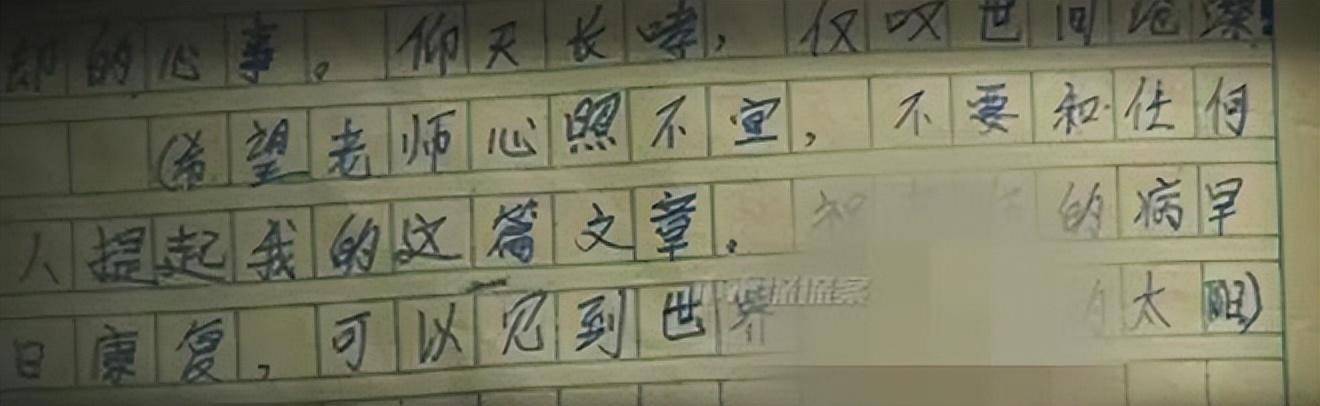 的心事。仰天长哮，仅叹世间沧深！
(希望老师心照不宣，不要和任何
人提起我的这篇文章。祝的病早
日康复，可以见到世界太阳)